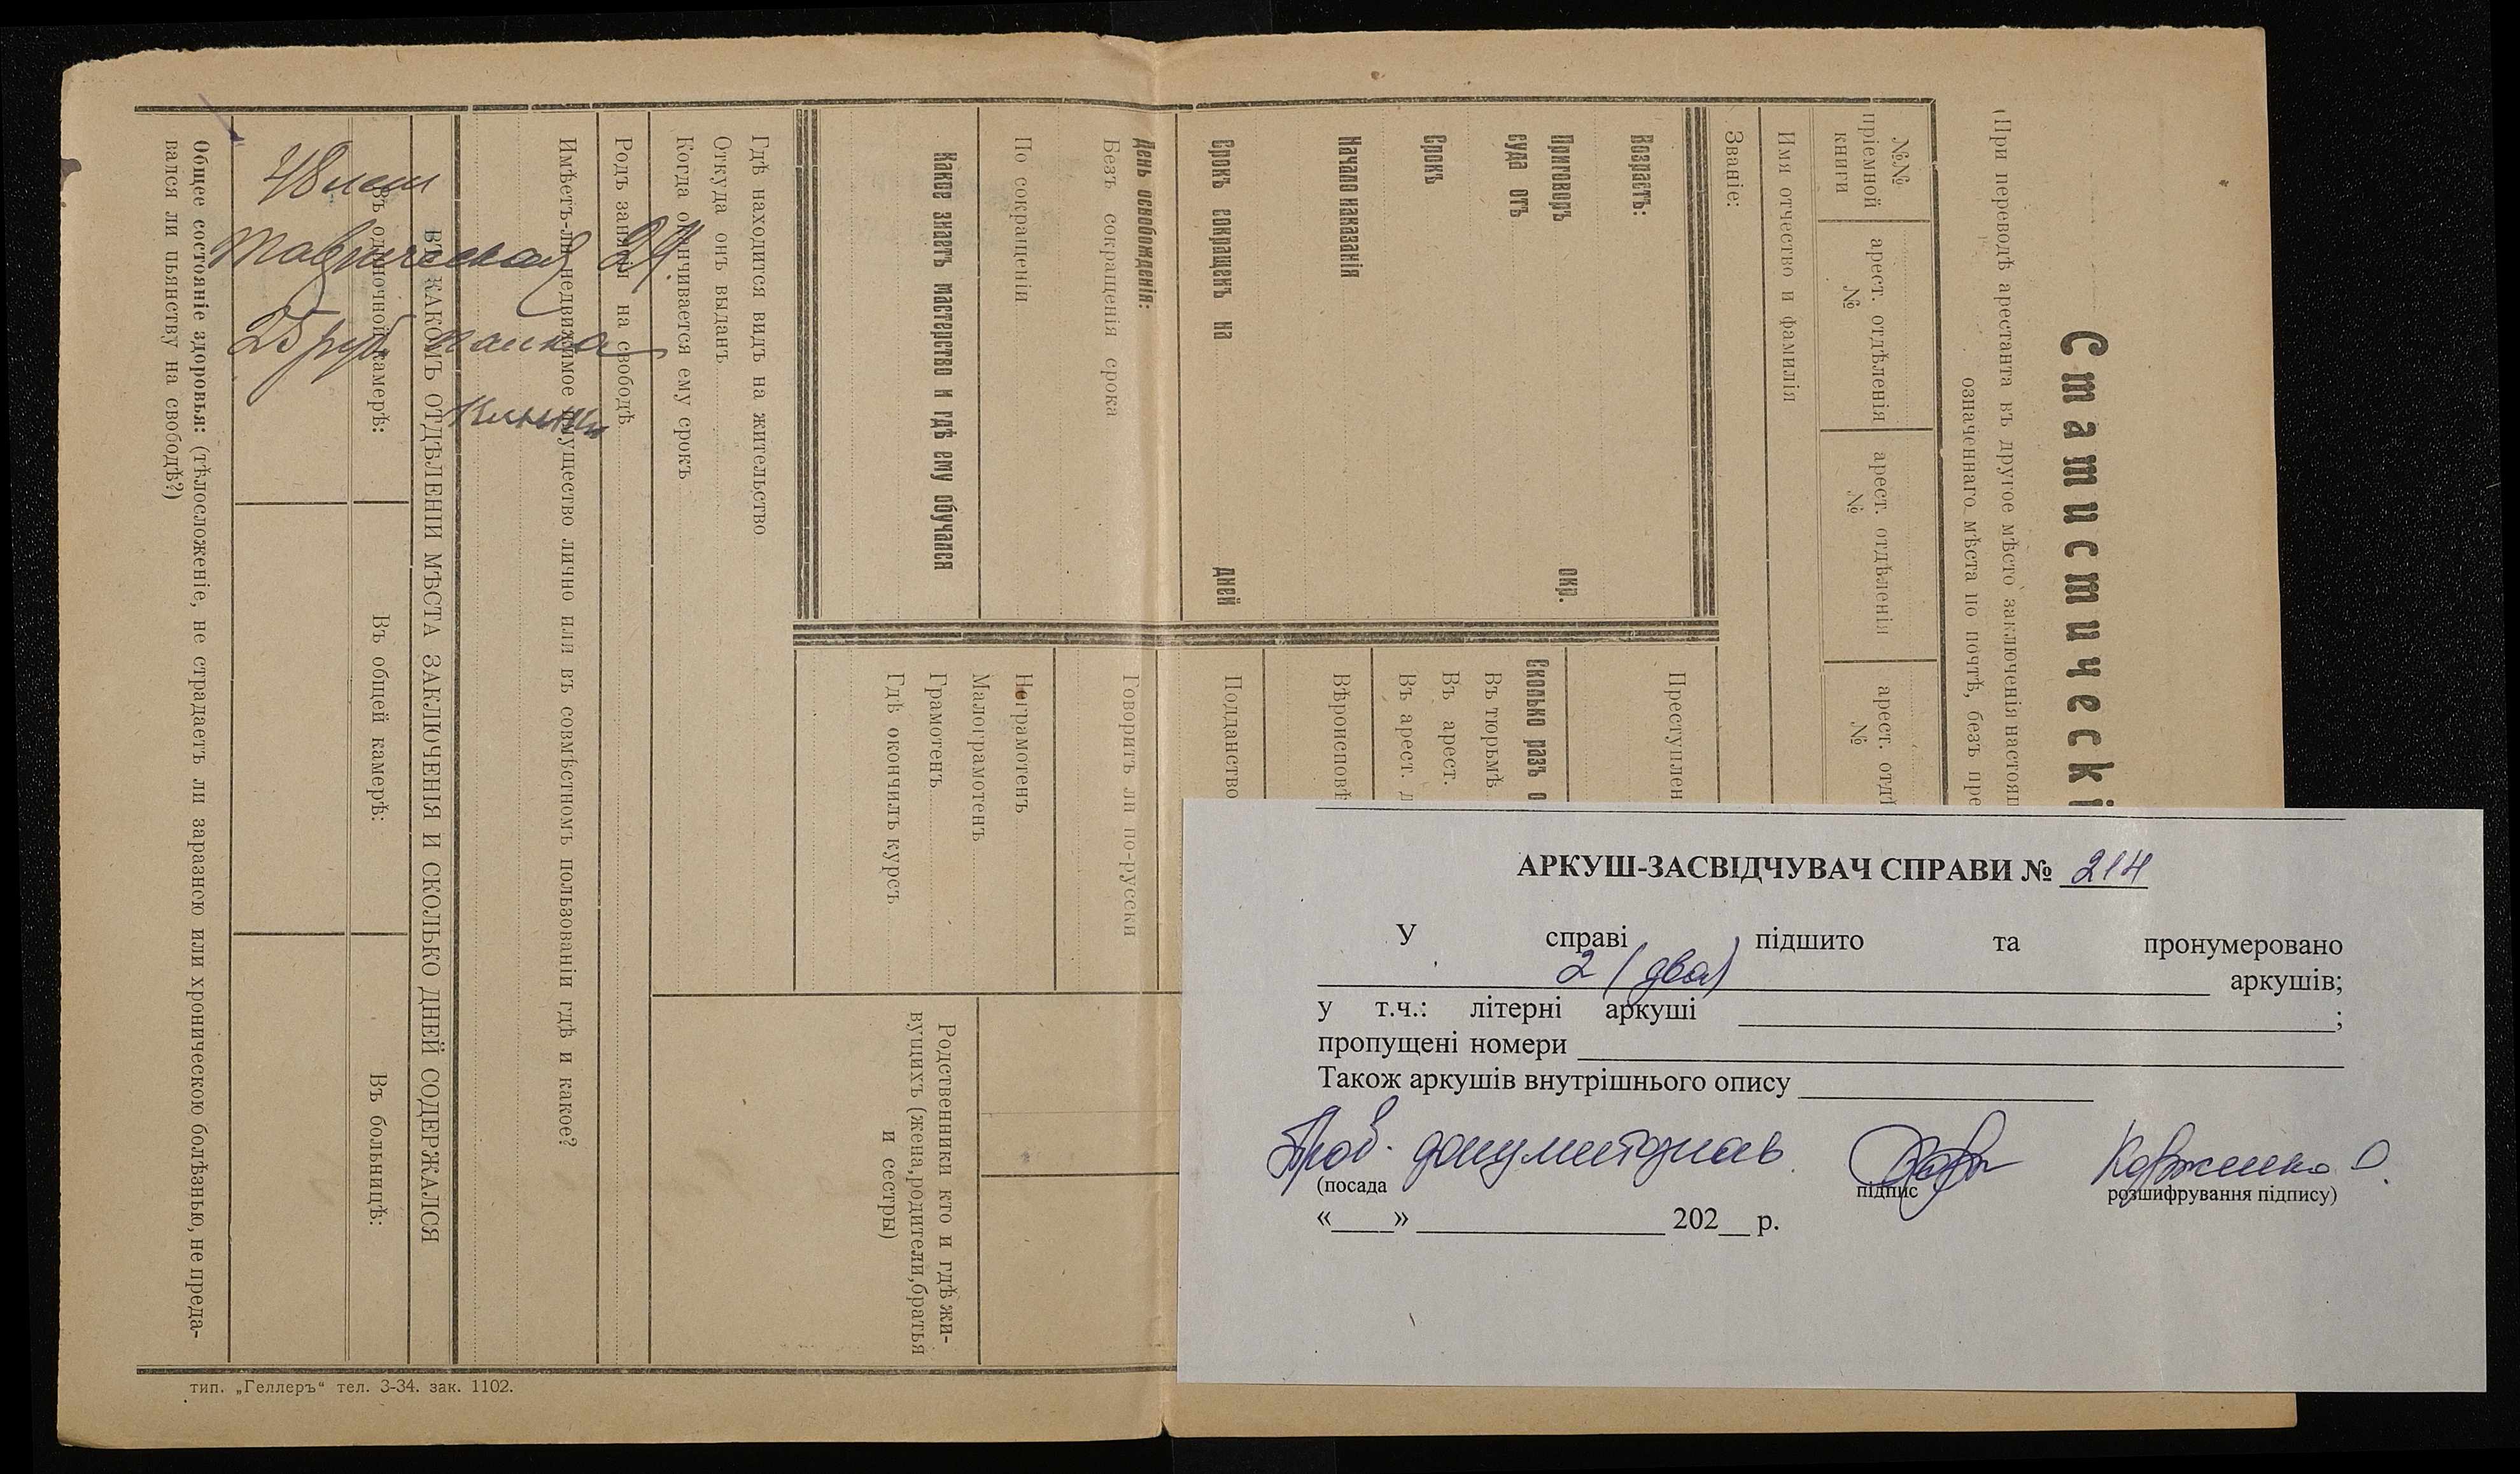 Статическі
(При переводѣ арестанта въ другое мѣсто заключенія настоящ
означеннаго мѣста по почтѣ, безъ пре
№№ пріемной книги
арест. отдѣленія №
арест. отдѣленія №
арест. отдѣ №
Имя отчество и фамилія
Званіе:
Возрастъ:
Приговоръ окр.
суда отъ
Срокъ
Начало наказанія
Срокъ сокращенъ на дней
День освобожденія:
Безъ сокращенія срока
По сокращеніи
Какое знаетъ мастерство и гдѣ ему обучался
Преступлен
Сколько разъ о
Въ тюрьмѣ
Въ арест.
Въ арест. д
Вѣроисповѣ
Подданство
Говоритъ ли по-русски
Неграмотенъ
Малограмотенъ
Грамотенъ
Гдѣ окончилъ курсъ
Родственники кто и гдѣ жи-
вущихъ (жена, родители, братья
и сестры)
Гдѣ находится видъ на жительство
Откуда онъ выданъ
Когда оканчивается ему срокъ
Родъ занятій на свободѣ
Имѣетъ-ли недвижимое имущество лично или въ совмѣстномъ пользованіи гдѣ и какое?
ВЪ КАКОМЪ ОТДѢЛЕНІИ МѢСТА ЗАКЛЮЧЕНІЯ И СКОЛЬКО ДНЕЙ СОДЕРЖАЛСЯ
Въ одиночной камерѣ:
Въ общей камерѣ:
Въ больницѣ:
Общее состояніе здоровья: (тѣлосложеніе, не страдаетъ ли заразною или хроническою болѣзнью, не преда-
вался ли пьянству на свободѣ?)
48 лет
Таврическая 24
25 руб
тип. „Геллеръ“ тел. 3-34. зак. 1102.
АРКУШ-ЗАСВІДЧУВАЧ СПРАВИ № 214
У справі підшито та пронумеровано
2 (два) аркушів;
у т.ч.: літерні аркуші ;
пропущені номери
Також аркушів внутрішнього опису
Пров. документознав
(посада підпис розшифрування підпису)
«    »    202   р.